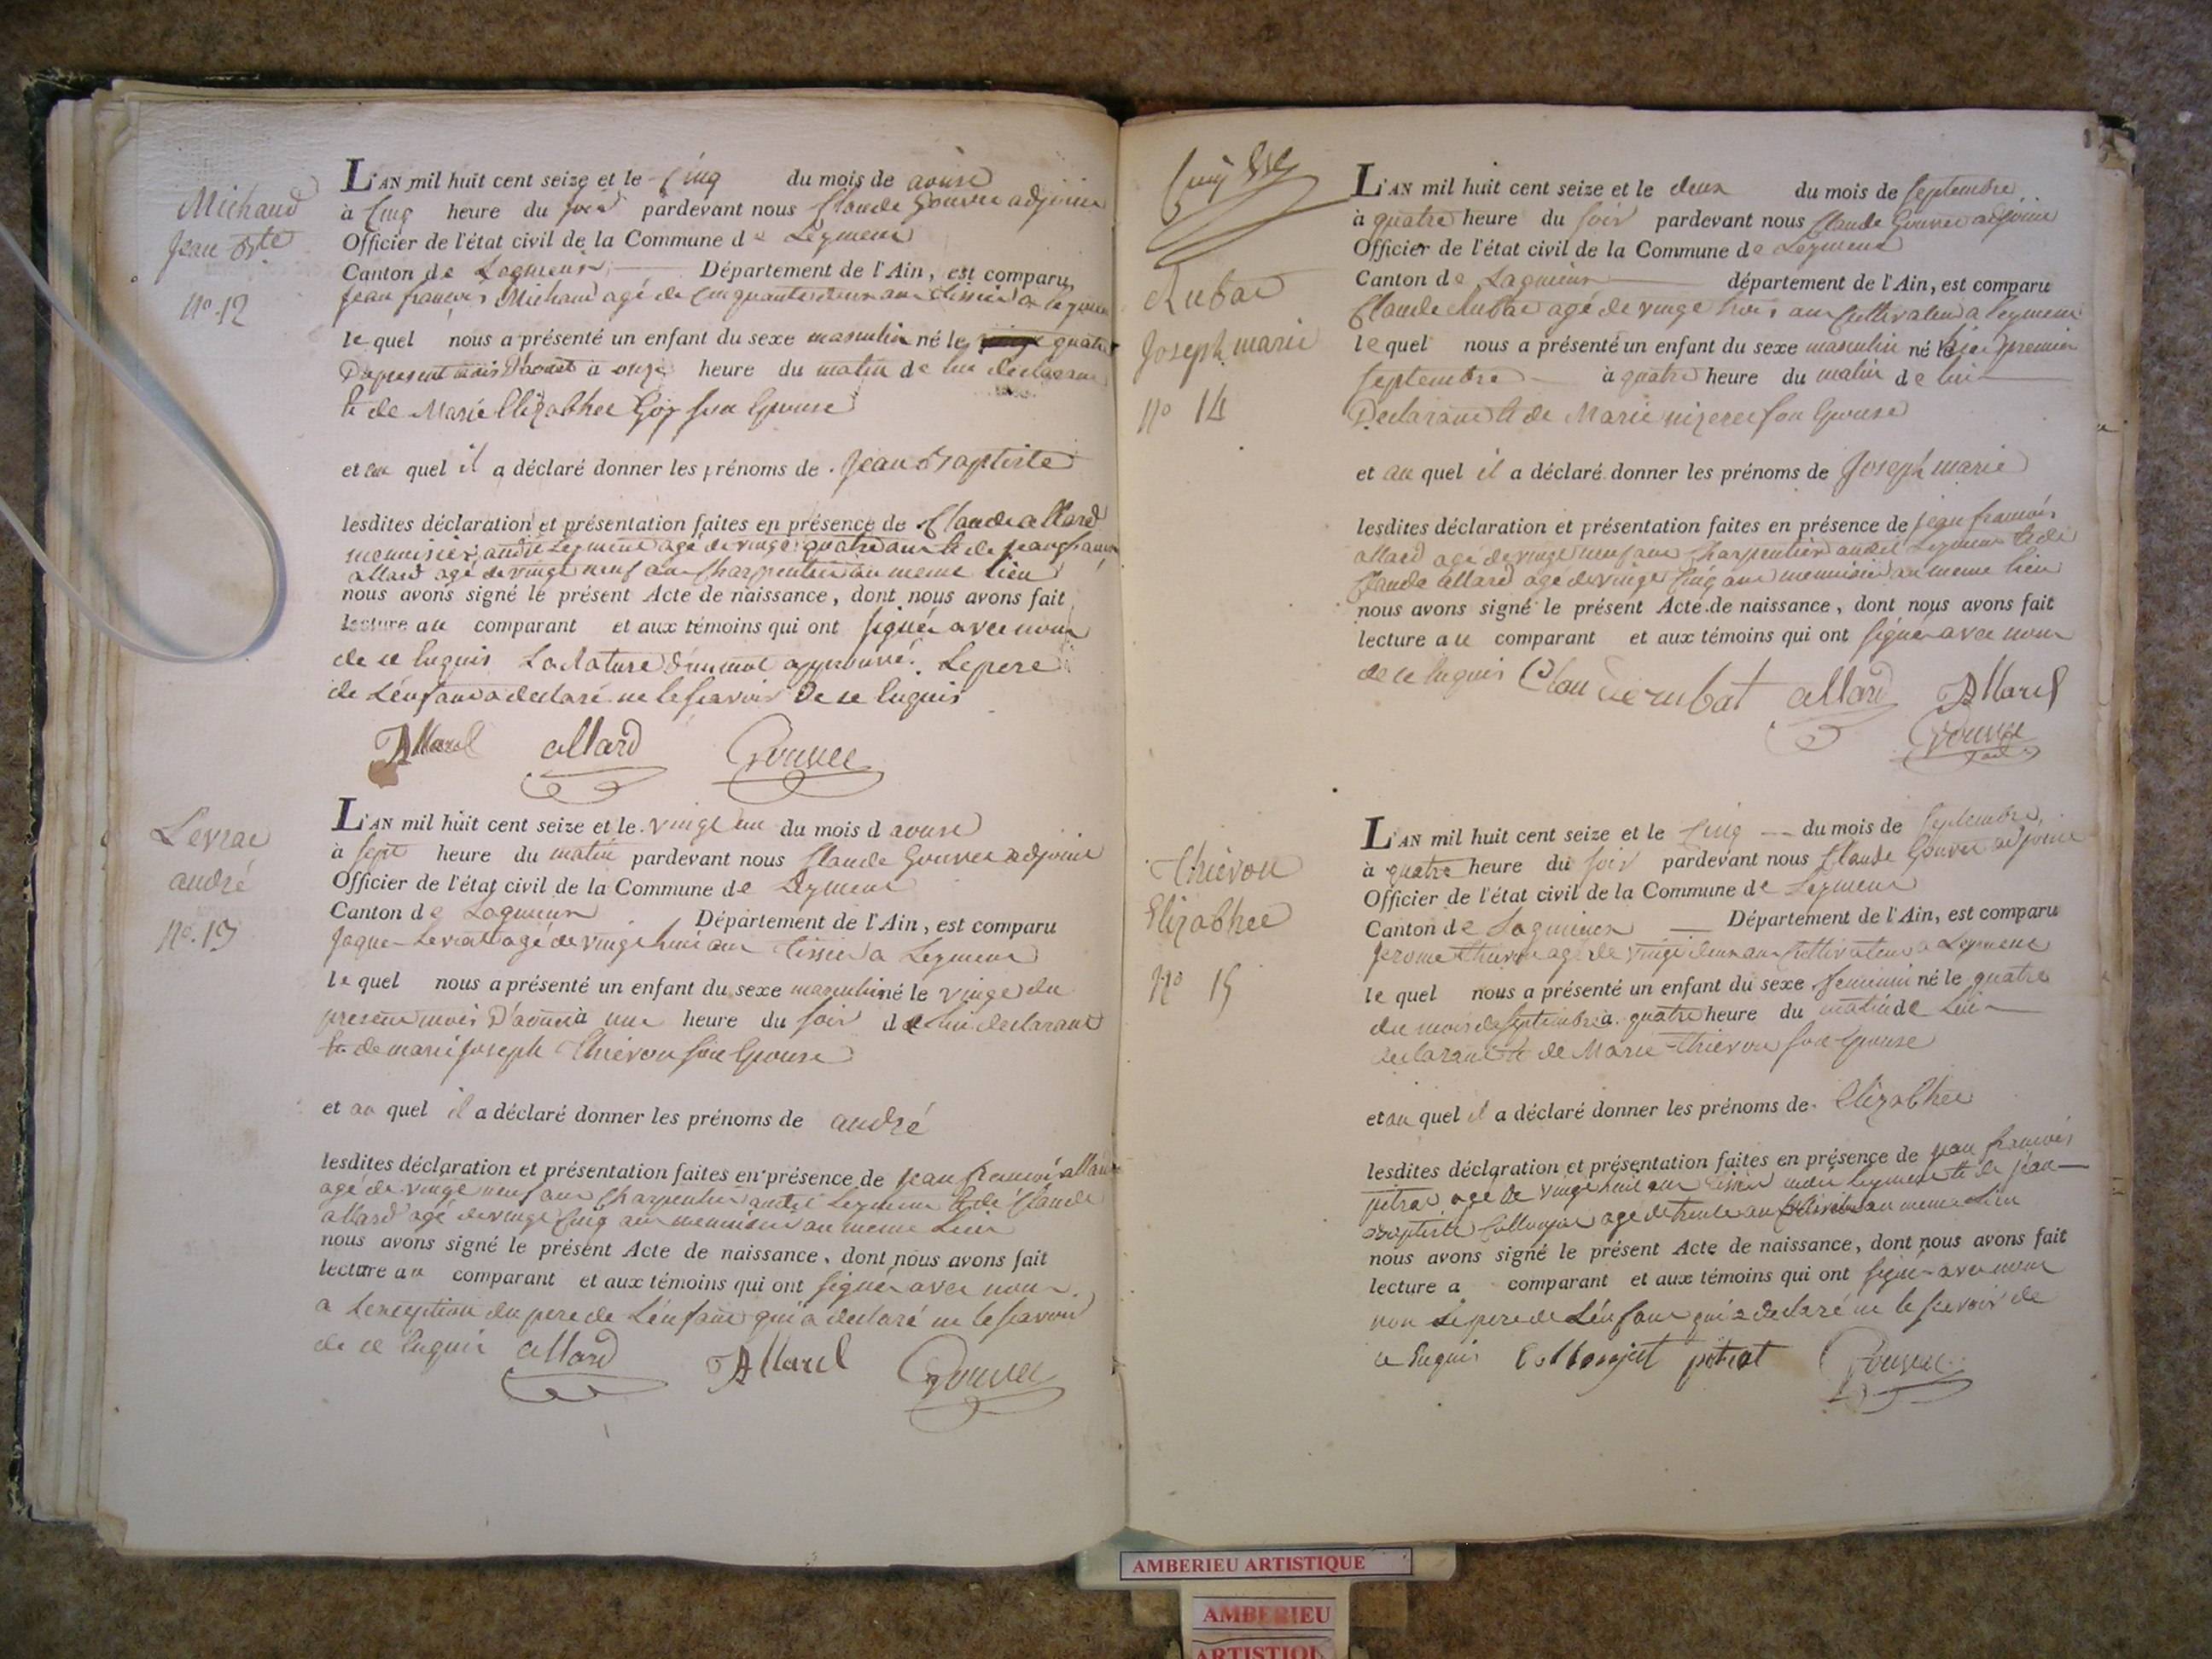 Michaud
Jean Bte
No. 12
L'AN mil huit cent seize et le cinq du mois de aoust
à cinq heure du soir pardevant nous Claude Gouvee adjoint
Officier de l'état civil de la Commune de Leyment
Canton de Lagnieux Département de l'Ain, est comparu
jean francois Michaud agé de cinquante deux ans tissier a leyment
le quel nous a présenté un enfant du sexe masculin né le quatre
Du present mois D'aoust à onze heure du matin de lui declarant
& de Marie Elizabhet Goy son Epouse
et au quel il a déclaré donner les prénoms de Jean Baptiste
lesdites déclaration et présentation faites en présence de Claude allard
menuisier audit Leyment agé de vingt quatre ans & de jean francois
allard agé de vingt neuf ans Charpentier au meme lieu
nous avons signé le présent Acte de naissance, dont nous avons fait
lecture au comparant et aux témoins qui ont signés avec nous
de ce Enquis La Rature d'un mot approuvé. Le pere
de L'enfant a declaré ne le scavoir De ce Enquis
Allard allard Gouvee
Levrat
andré
No. 13
L'AN mil huit cent seize et le vingt un du mois d aoust
à sept heure du matin pardevant nous Claude Gouvee adjoint
Officier de l'état civil de la Commune de Leyment
Canton de Lagnieux Département de l'Ain, est comparu
Jaque Levrat agé de vingt huit ans tissier a Leyment
le quel nous a présenté un enfant du sexe masculin né le vingt du
present mois D'aoust à une heure du soir de lui declarant
& de marie joseph Thievon son Epouse
et au quel il a déclaré donner les prénoms de andré
lesdites déclaration et présentation faites en présence de jean francois allard
agé de vingt neuf ans Charpentier audit Leyment & de Claude
allard agé de vingt cinq ans menuisier au meme Lieu
nous avons signé le présent Acte de naissance, dont nous avons fait
lecture au comparant et aux témoins qui ont signés avec nous
a Lexception du pere de L'enfant qui a declaré ne le scavoir
de ce Enquis allard Allard Gouvee
Rubat
Joseph marie
No 14
L'AN mil huit cent seize et le deux du mois de septembre
à quatre heure du soir pardevant nous Claude Gouvee adjoint
Officier de l'état civil de la Commune de Leyment
Canton de Lagnieux département de l'Ain, est comparu
Claude Rubat agé de vingt trois ans Cultivateur a leyment
le quel nous a présenté un enfant du sexe masculin né hier premier
septembre à quatre heure du matin de lui
Declarant & de Marie nizeret son Epouse
et au quel il a déclaré donner les prénoms de Joseph marie
lesdites déclaration et présentation faites en présence de jean francois
allard agé de vingt neuf ans Charpentier audit Leyment & de
Claude allard agé de vingt cinq ans menuisier au meme lieu
nous avons signé le présent Acte de naissance, dont nous avons fait
lecture au comparant et aux témoins qui ont signés avec nous
de ce Enquis Claude rubat allard Allard
Gouvee
Thievon
Elizabhet
No 15
L'AN mil huit cent seize et le cinq du mois de septembre,
à quatre heure du soir pardevant nous Claude Gouvee adjoint
Officier de l'état civil de la Commune de Leyment
Canton de Lagnieux Département de l'Ain, est comparu
Jerome thievon agé de vingt deux ans Cultivateur a Leyment
le quel nous a présenté un enfant du sexe feminin né le quatre
du mois de septembre à quatre heure du matin de Lui
declarant & de Marie Thievon son Epouse
et au quel il a déclaré donner les prénoms de Elizabhet
lesdites déclaration et présentation faites en présence de jean francois
agé de vingt huit ans tissier audit Leyment & de jean
Baptiste agé de trente ans Cultivateur au meme Lieu
nous avons signé le présent Acte de naissance, dont nous avons fait
lecture a comparant et aux témoins qui ont signés avec nous
non Le pere de L'enfant qui a declaré ne le scavoir de
ce Enquis Gouvee
AMBERIEU ARTISTIQUE
AMBERIEU
ARTISTIQU